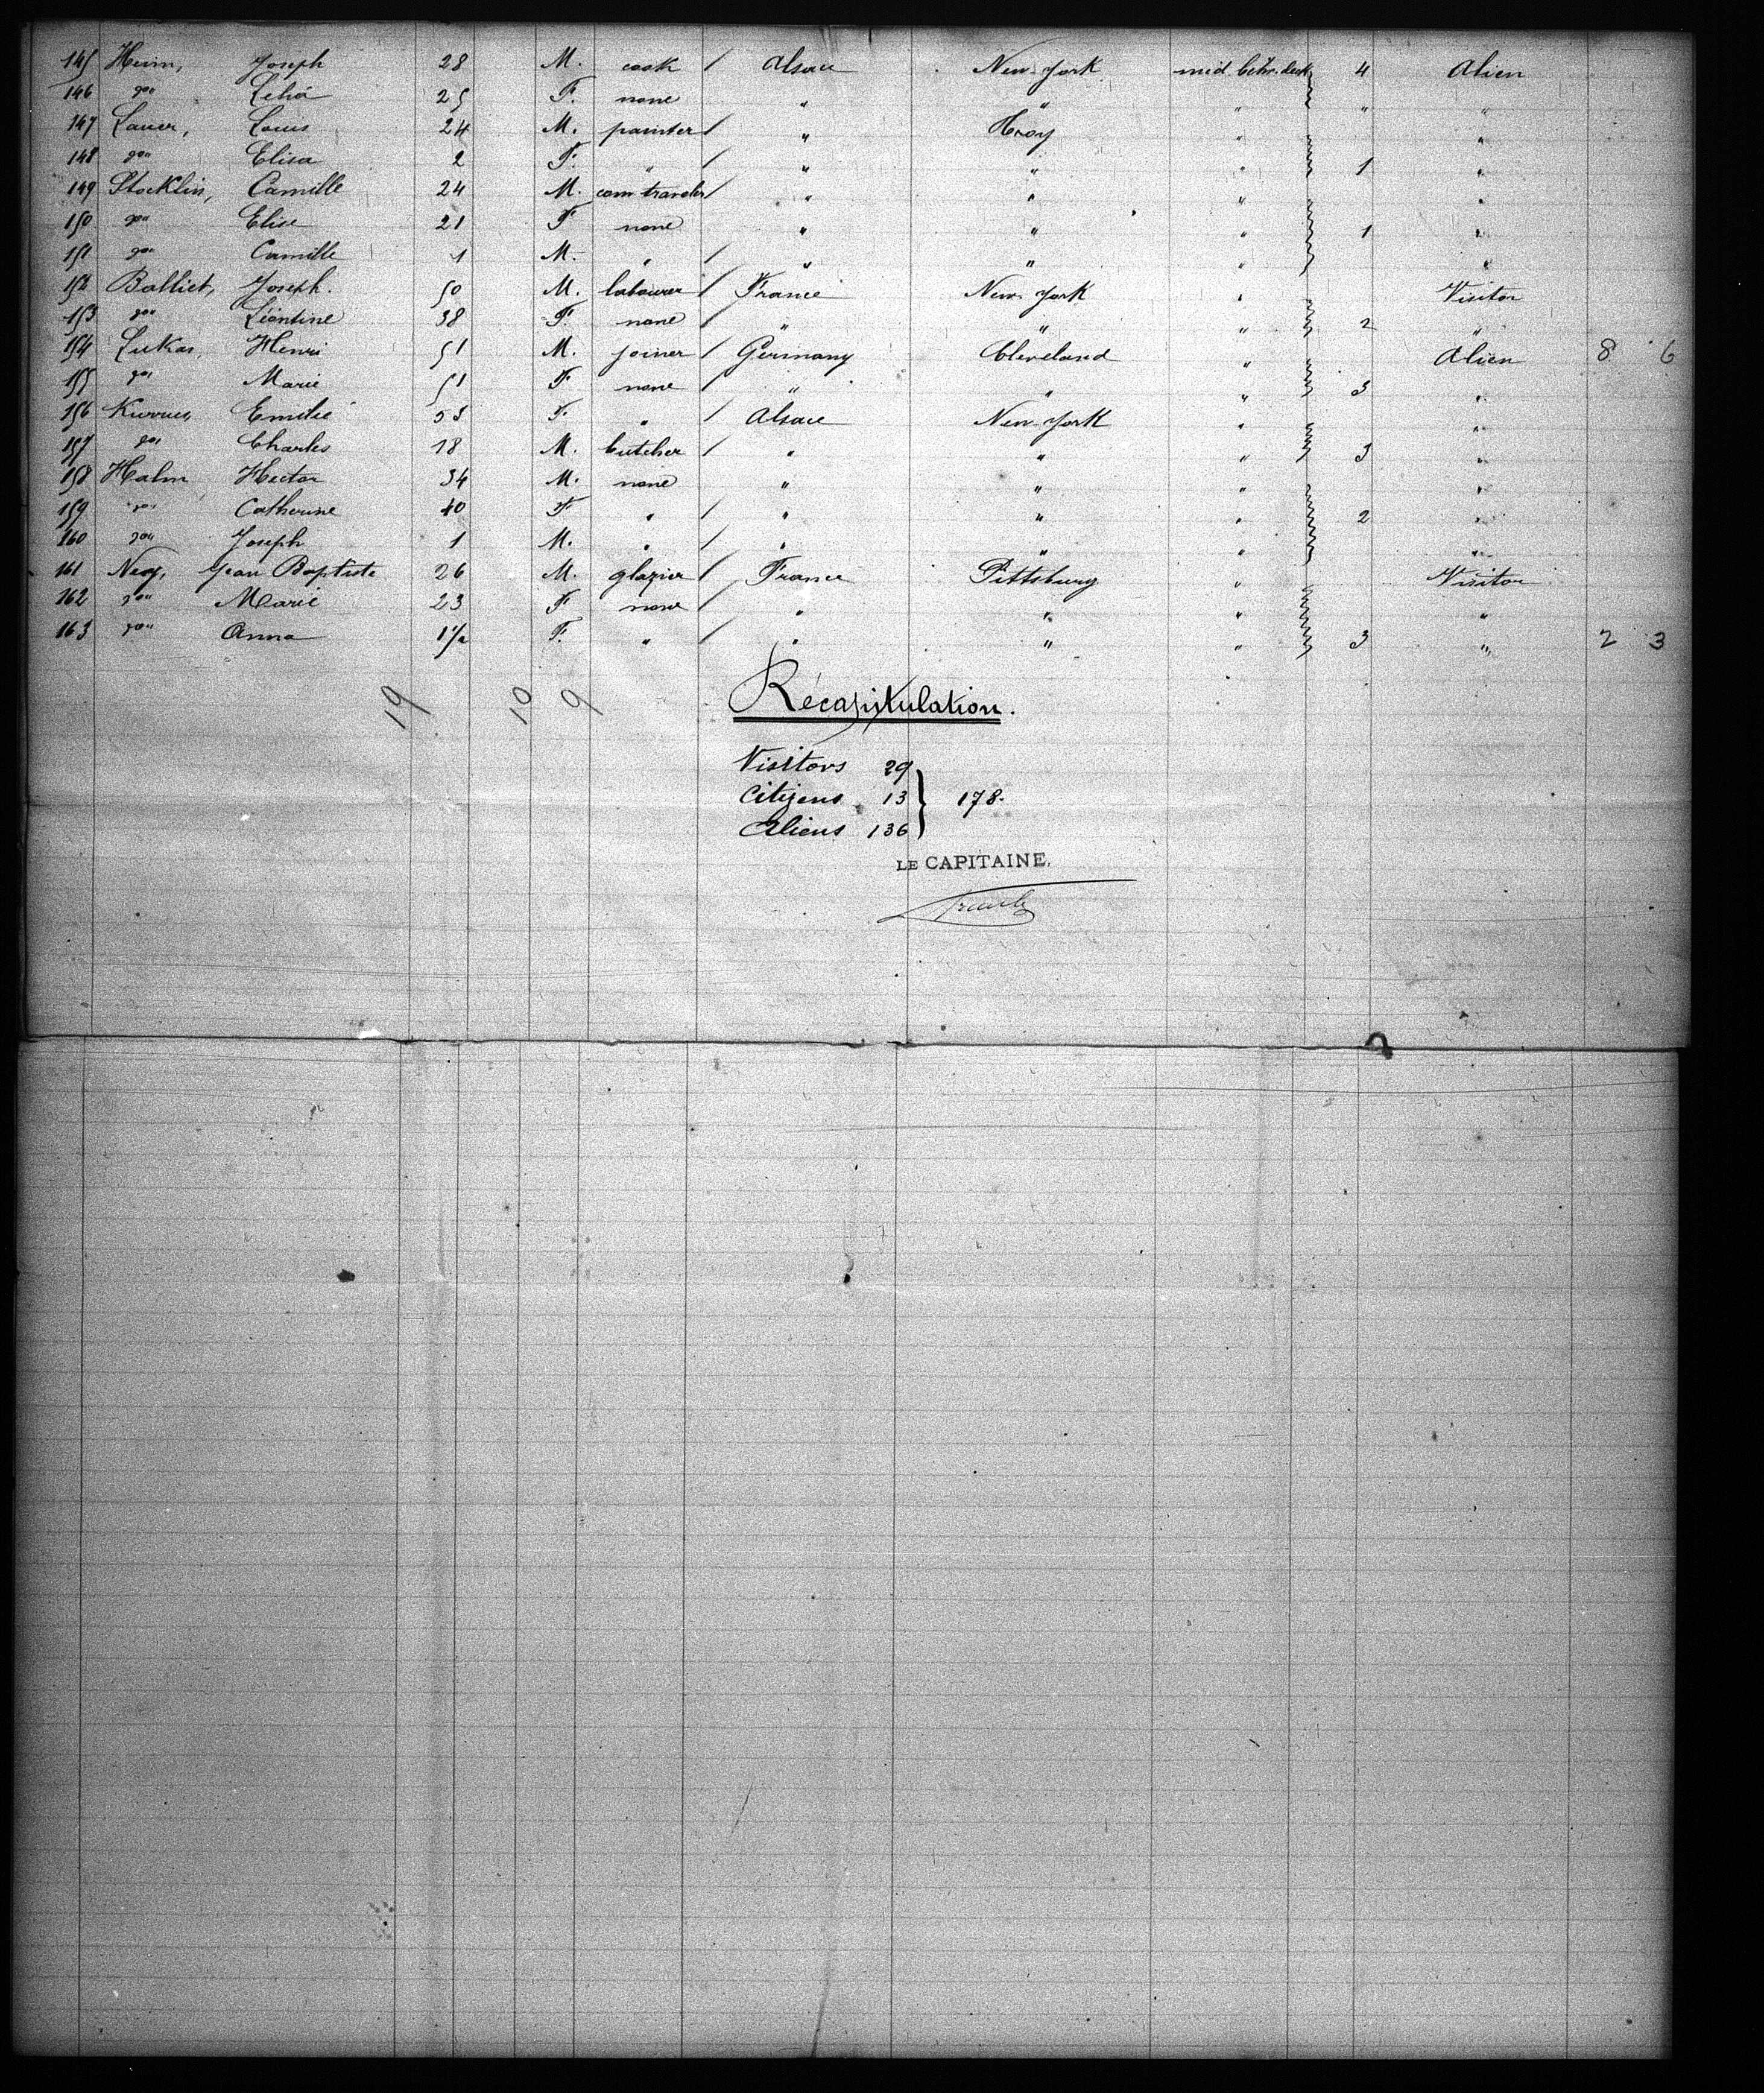 145 Heim, Joseph 28 M. cook / Alsace New York mid. betw. deck 4 Alien
146 do Lehá 25 F. none " " " " "
147 Lauer, Louis 24 M. painter / " Troy " "
148 do Elisa 2 F. " / " " " 1 "
149 Stocklin, Camille 24 M. com traveler / " " " "
150 do Elise 21 F none " " " 1 "
151 do Camille 1 M. " / " " " "
152 Balliet, Joseph. 50 M. labourer / France New York " Visitor
153 do Léontine 38 F. none / " " " 2 "
154 Lukas, Henri 51 M. joiner / Germany Cleveland " Alien 8 6
155 do Marie 51 F none / " " " 3 "
156 Emilie 53 F. " / Alsace New York " "
157 do Charles 18 M. butcher / " " " 3 "
158 Halm Hector 34 M. none " " " "
159 do Catherine 40 F " / " " " 2 "
160 do Joseph 1 M. " / " " " "
161 Ney, Jean Baptiste 26 M. glazier / France Pittsburg " Visitor
162 do Marie 23 F none / " " " "
163 do Anna 1 1/2 F. " / " " " 3 " 2 3
19 10 9
Récapitulation.
Visitors 29
Citizens 13 } 178.
Aliens 136
LE CAPITAINE,